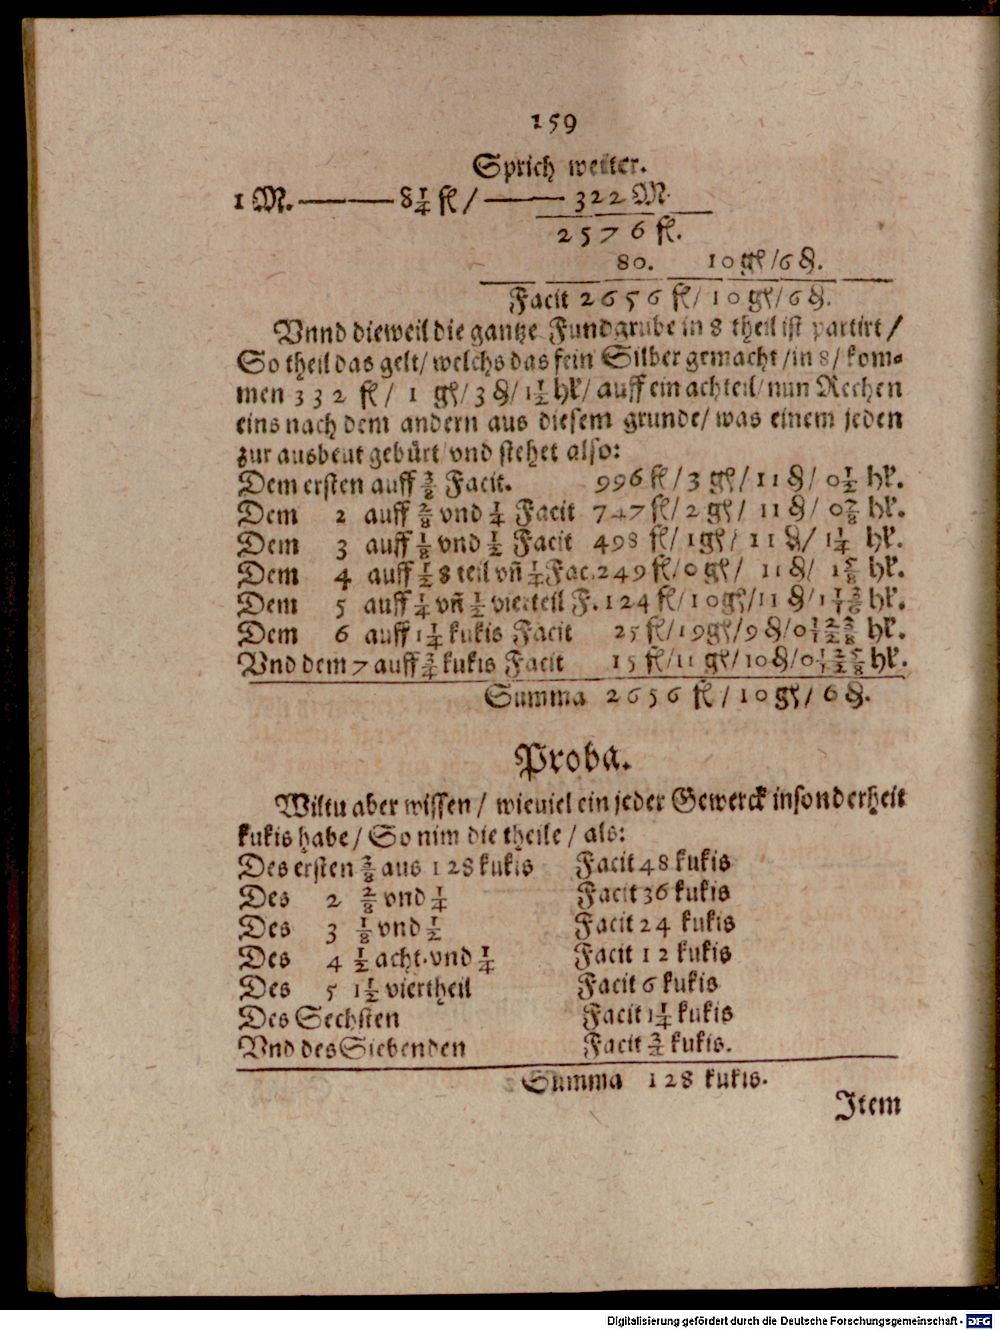 159
Sprich weiter.
1 M. ——— 8 1/4 fl / ——— 322 M.
2576 fl.
80. 10 gſ /6 ₰.
Facit 2656 fl/ 10 gſ/6 ₰.
Vnnd dieweil die gantze Fundgrube in 8 theil ist partirt /
So theil das gelt/ welchs das fein Silber gemacht /in 8/ kom⸗
men 332 fl/ 1 gſ/ 3 ₰/ 1 1/2 hl/ auff ein achteil/ nun Rechen
eins nach dem andern aus diesem grunde/ was einem jeden
zur ausbeut gebürt/ vnd stehet also:
Dem ersten auff 3/8 Facit. 996 fl/ 3 gſ/ 11 ₰/ 0 1/2 hl.
Dem 2 auff 2/8 vnd 1/4 Facit 747 fl/ 2 gſ/ 11 ₰/ 0 7/8 hl.
Dem 3 auff 1/8 vnd 1/2 Facit 498 fl/ 1 gſ/ 11 ₰/ 1 1/4 hl.
Dem 4 auff 1/2 8 teil vñ 1/4 Fac. 249 fl/ 0 gſ/ 11 ₰/ 1 5/8 hl.
Dem 5 auff 1/4 vñ 1/2 vierteil F. 124 fl/ 10 gſ/11 ₰/ 1 13/16 hl.
Dem 6 auff 1 1/4 kukis Facit 25 fl/ 19 gſ/9 ₰/0 123/128 hl.
Vnd dem 7 auff 3/4 kukis Facit 15 fl/11 gſ/ 10 ₰/0 125/128 hl.
Summa 2656 fl/ 10 gſ/ 6 ₰.
Proba.
Wiltu aber wissen / wieuiel ein jeder Gewerck insonderheit
kukis habe/ So nim die theile / als:
Des ersten 3/8 aus 128 kukis Facit 48 kukis
Des 2 2/8 vnd 1/4 Facit 36 kukis
Des 3 1/8 vnd 1/2 Facit 24 kukis
Des 4 1/2 acht. vnd 1/4 Facit 12 kukis
Des 5 1 1/2 viertheil Facit 6 kukis
Des Sechsten Facit 1 1/4 kukis
Vnd des Siebenden Facit 3/4 kukis.
Summa 128 kukis.
Item
Digitalisierung gefördert durch die Deutsche Forschungsgemeinschaft - DFG